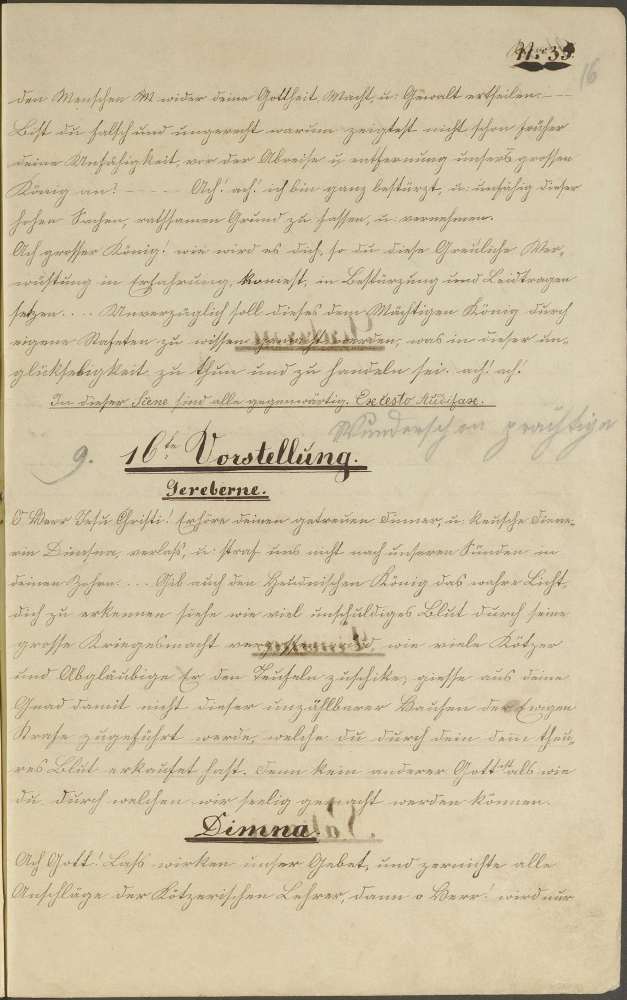 N<sup>ro</sup> 35.
16
den Menschen M wider deine Gottheit, Macht, u: Gewalt ertheilen: — —
Bist du falsch und ungerecht warum zeigtest nicht schon früher
deine Unfähigkeit, vor der Abreise u: entfernung unsers grossen
König an? — - - - - Ach! ach! ich bin ganz bestürzt, u: unfähig dieser
hohen Sachen, rathsamen Grund zu fassen, u: vernehmen.
Ach grosser König! wie wird es dich, so du diese Greuliche Ver,,
wüstung in Erfahrung, komest, in Bestürzung und Leidtragen
setzen . . . . Unverzüglich soll dieses dem Mächtigen König durch
eigene Stafeten zu wissen gemacht werden, was in dieser un,,
glückseligkeit zu thun und zu handeln sei. ach! ach!
In dieser Scene sind alle gegenwärtig. Exelesto Audifax.
Wunderschen prächtige
9. 10<sup>te</sup> Vorstellung.
Gereberne.
O Herr Jesu Christi! Erhöre deinen getreuen Dinner, u: keusche Diene,,
rin Dimna, verlass, u: straf uns nicht nach unseren Sünden in
deinen Zohrn. . . . Gib auch den Heudnischen König das wahre Licht,
dich zu erkennen siehe wie viel unschuldiges Blut durch seine
grosse Kriegesmacht wie viele Kötzer
und Abgläubige Er den Teufeln zuschike, giesse aus deine
Gnad damit nicht dieser unzählbarer Haufen der Ewigen
Strafe zugeführt werde, welche du durch dein dein theu,,
res Blut erkaufet hast. Denn kein anderer Gott ist als wie
du, durch welchen wir seelig gemacht werden können.
Dimna.
Ach Gott! Lass wirken unser Gebet, und zernichte alle
Anschläge der Kötzerischen Lehrer, dann o Herr! wird nur